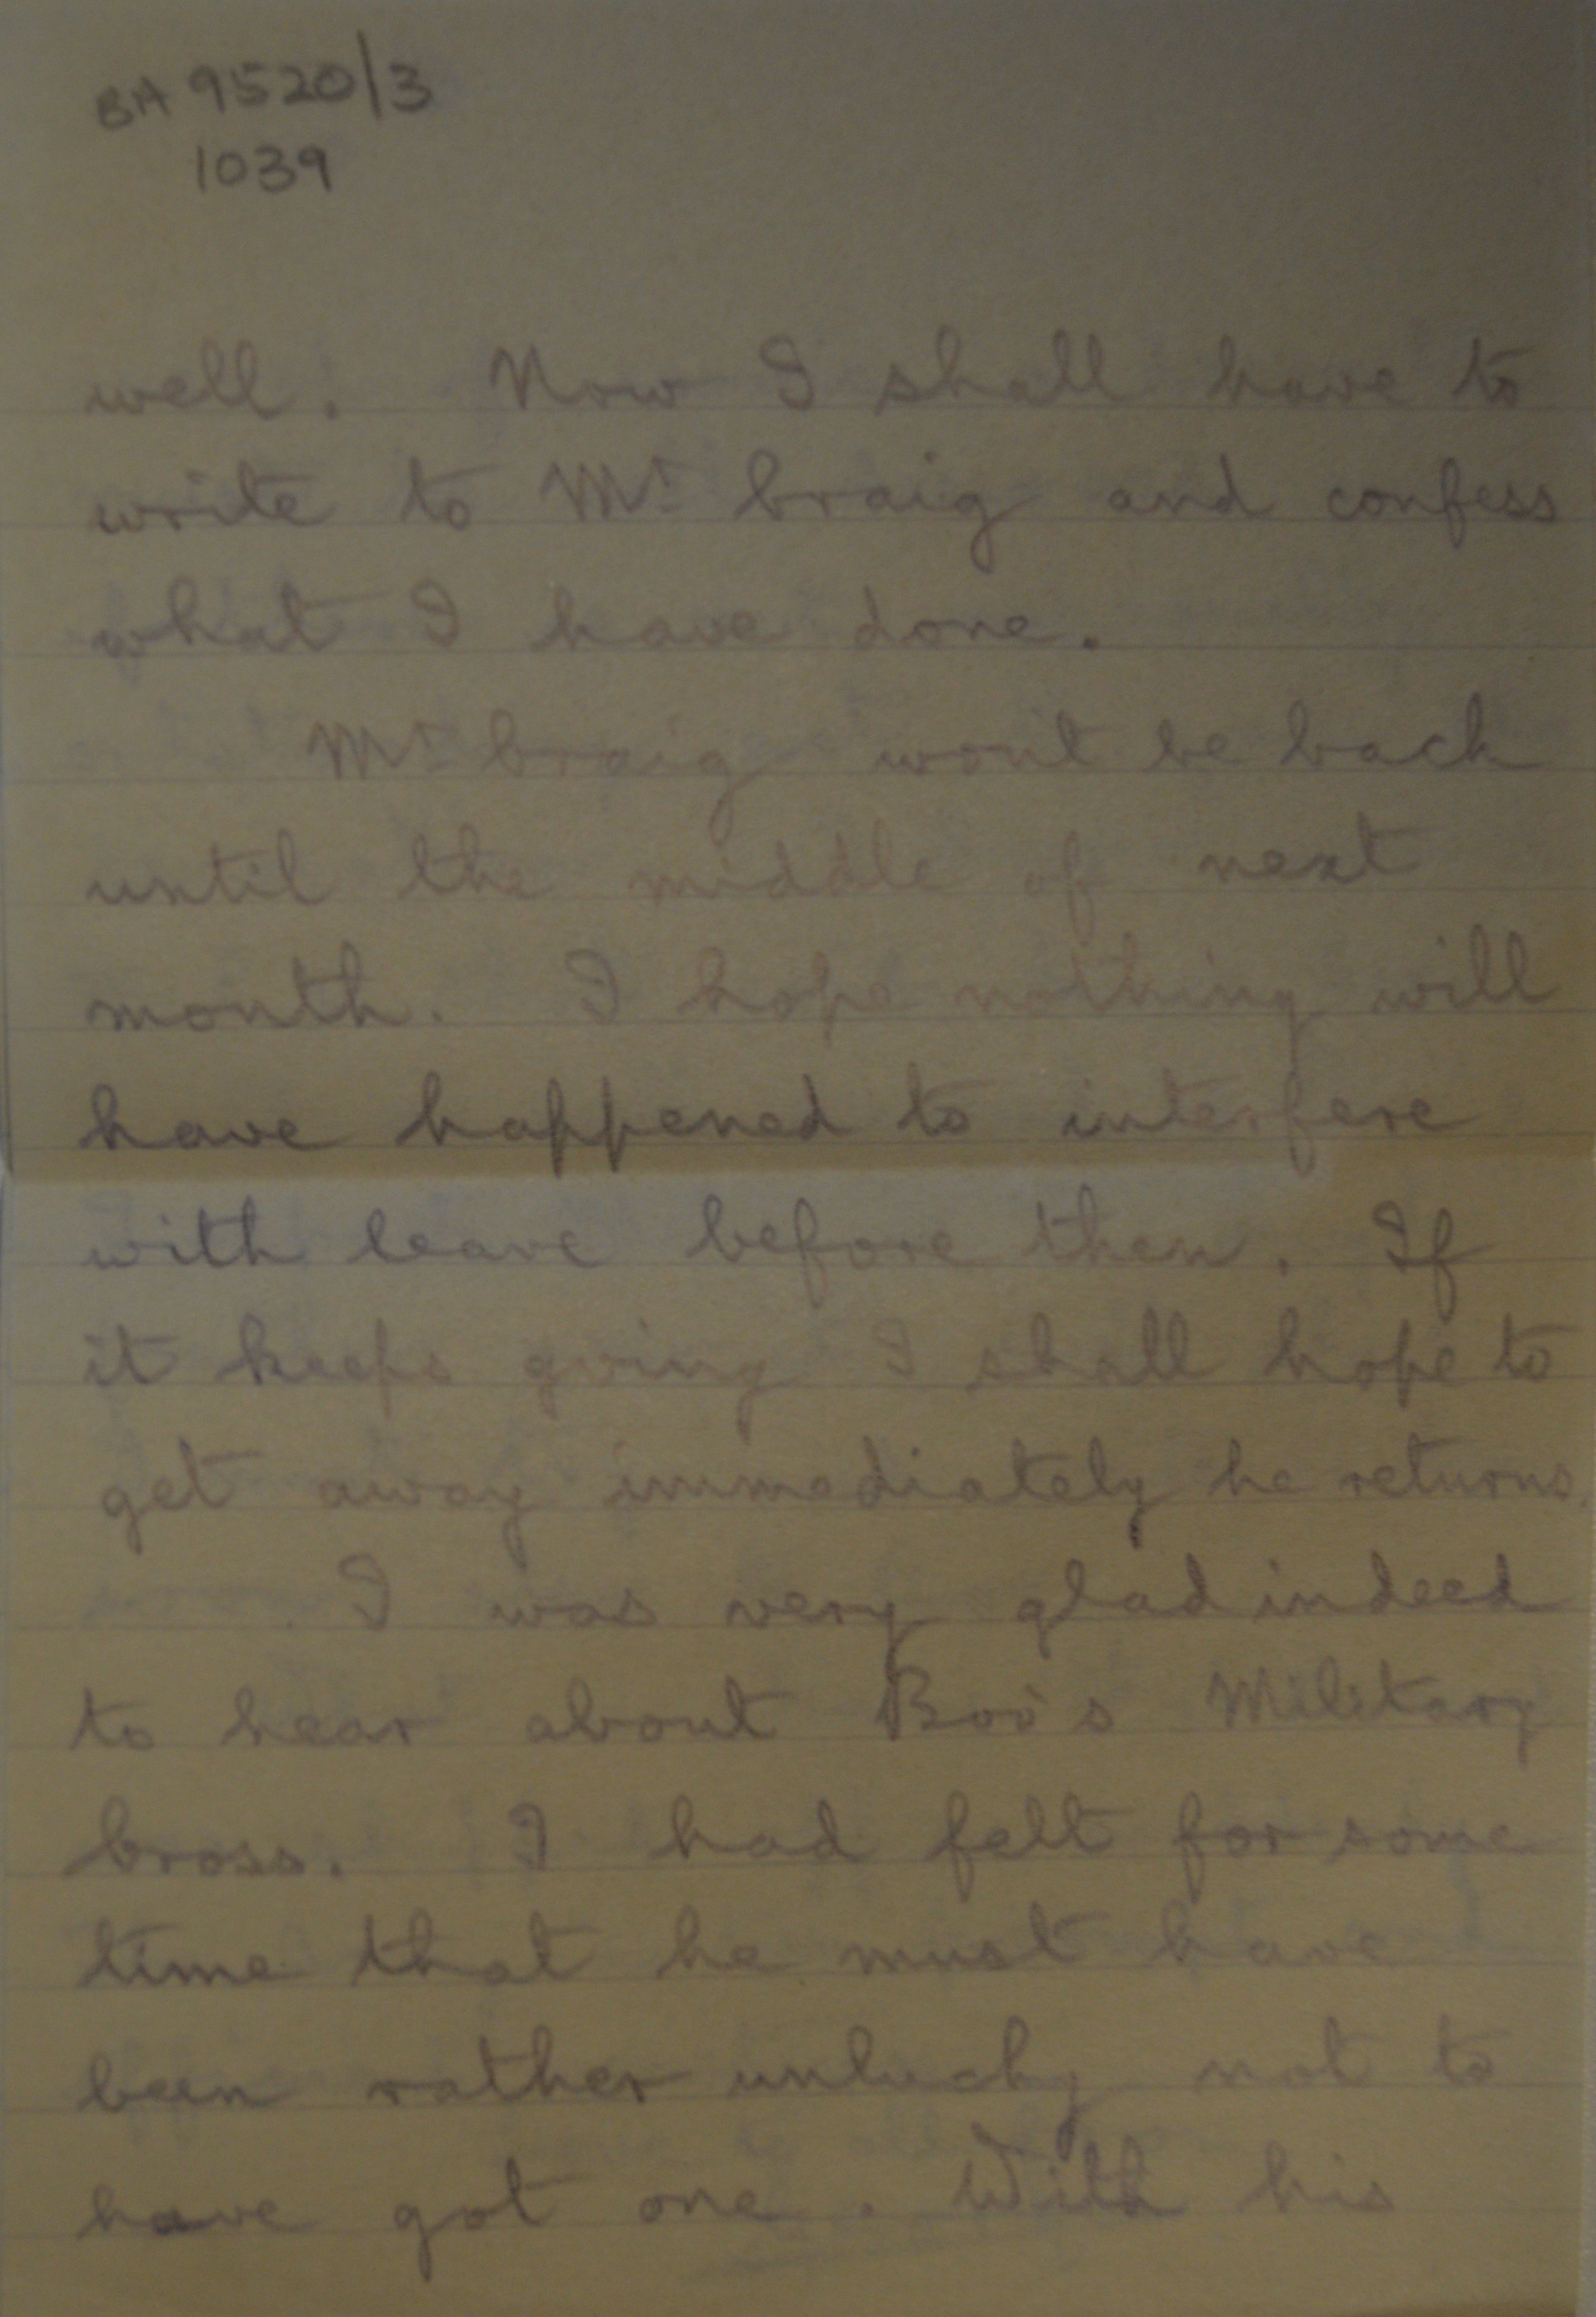 BA 9520/3
1039
well. Now I shall have to
write to Mr Craig and confess
what I have done.
Mr Craig wont be back
until the middle of next
month. I hope nothing will
have happened to interfere
with leave before then. If
it keeps going I shall hope to
get away immediately he returns.
I was very glad indeed
to hear about Boo's Military
Cross. I had felt for some
time that he must have
been rather unlucky not to
have got one. With his